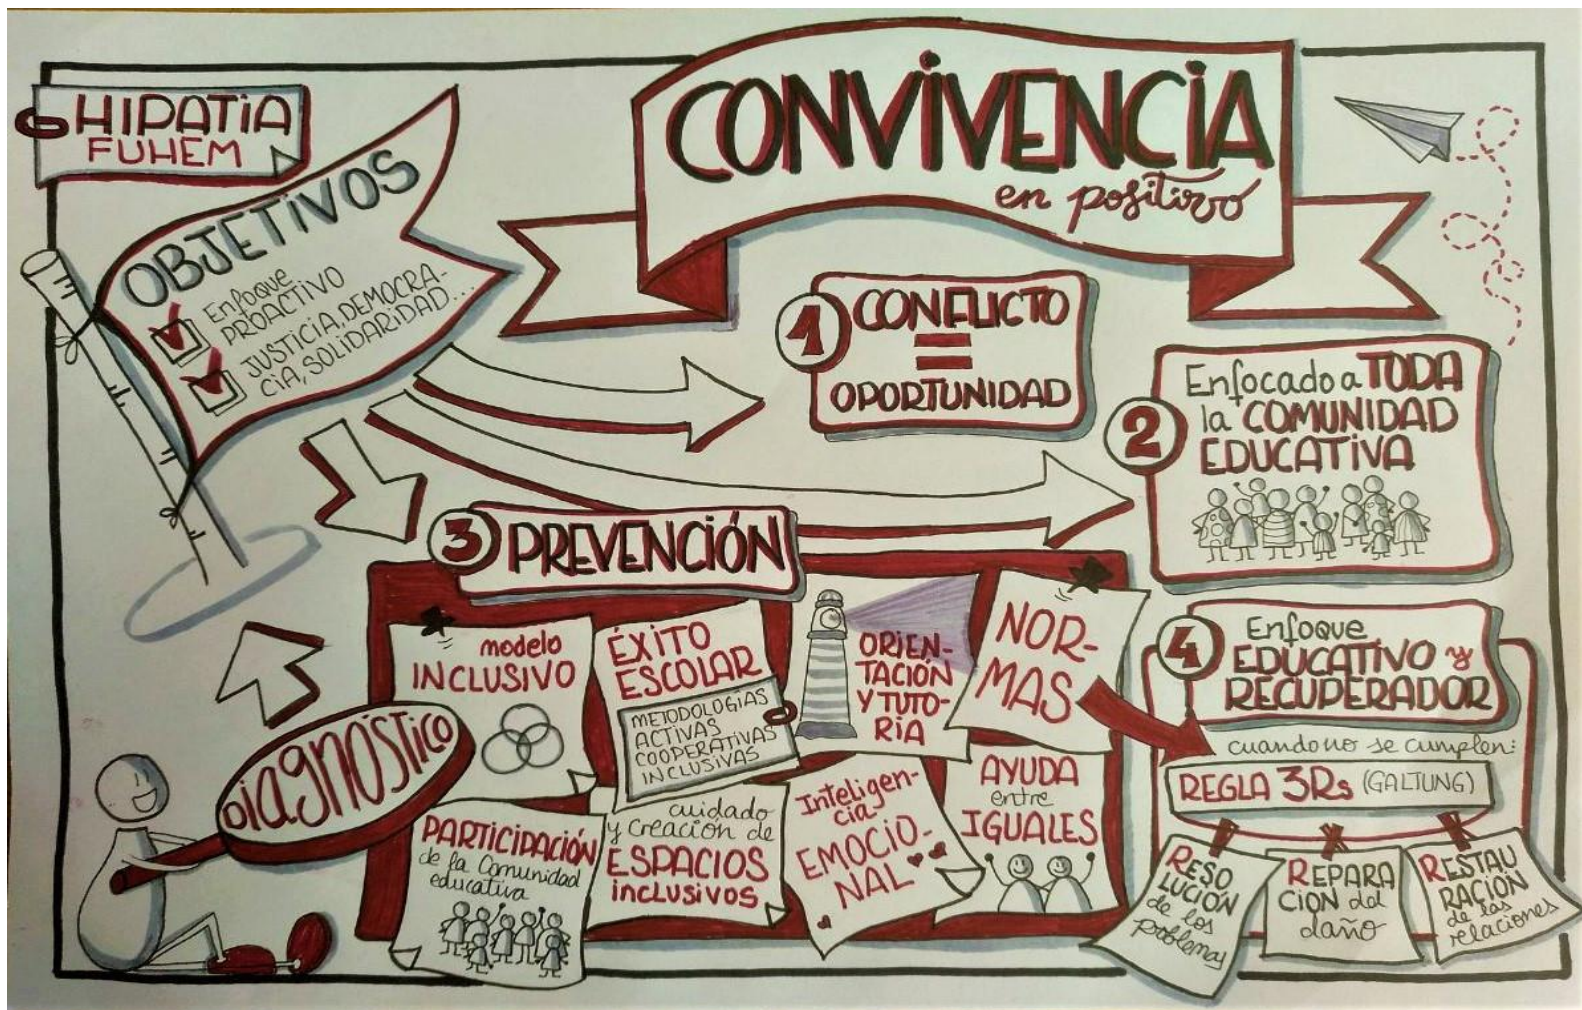 HIPATIA
FUHEM
CONVIVENCIA
en positivo
OBJETIVOS
Enfoque
PROACTIVO
JUSTICIA, DEMOCRA-
CIA, SOLIDARIDAD...
1
CONFLICTO
=
OPORTUNIDAD
2
Enfocado a TODA
la COMUNIDAD
EDUCATIVA
3
PREVENCIÓN
modelo
INCLUSIVO
ÉXITO
ESCOLAR
METODOLOGÍAS
ACTIVAS
COOPERATIVAS
INCLUSIVAS
ORIEN-
TACIÓN
Y TUTO-
RÍA
NOR-
MAS
Diagnóstico
PARTICIPACIÓN
de la Comunidad
educativa
cuidado
y creación de
ESPACIOS
inclusivos
Inteligen-
cia
EMOCIO-
NAL
AYUDA
entre
IGUALES
4
Enfoque
EDUCATIVO y
RECUPERADOR
cuando no se cumplen:
REGLA 3Rs (GALTUNG)
RESO
LUCIÓN
de los
problemas
REPARA
CION del
daño
RESTAU
RACIÓN
de las
relaciones